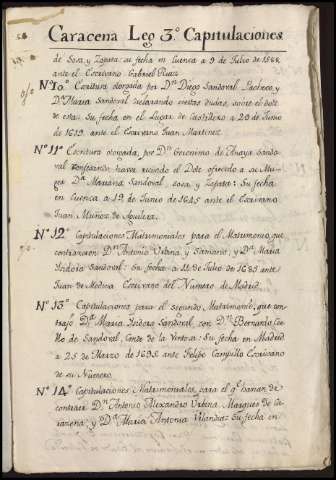 Caracena Leg 3º Capitulaciones
de Sosa, y Zapata: su fecha en Cuenca a 9 de Julio de
ante el Escrivano Gabriel Ruiz
Nº 10º Escritura otorgada por Dn Diego Sandoval Pacheco, y
Dª Maria Sandoval declarando ciertas dudas, sobre el dote
de esta: Su fecha en el Lugar de a 29 de Junio
de 1613 ante el Escrivano Juan Martinez.
Nº 11º Escritura otorgada, por Dn Geronimo de Anaya Sando
val confesando haver recivido el Dote ofrecido a su Mu-
ger Dª Mariana Sandoval sosa, y Zapata: Su fecha
en Cuenca a 19 de Junio de 1645 ante el Escrivano
Juan Muñoz de Aguilera.
Nº 12º Capitulaciones Matrimoniales para el Matrimonio, que
contraxeron Dn Antonio Urbina, y Samano, y Dª Maria
Isidora Sandoval: Su fecha a 14 de Julio de 1685 ante
Juan de Medina Escrivano del Número de Madrid.
Nº 13º Capitulaciones para el segundo Matrimonio, que con-
trajo Dª Maria Isidora Sandoval con Dn Bernardo Coe
llo de Sandoval, Conde de la Ventosa: Su fecha en Madrid
a 25 de Marzo de 1695 ante Felipe Campillo Escrivano
de su Número.
Nº 14º Capitulaciones Matrimoniales, para el qe havian de
contraer Dn Antonio Alexandro Urbina, Marques de Ca-
racena; y Dª Maria Antonia Velandia: Su fecha en